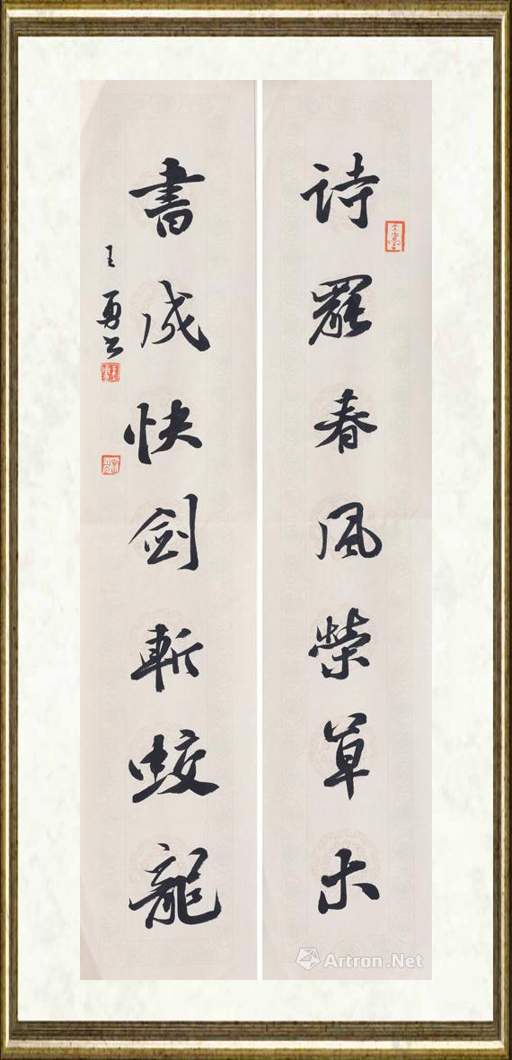 詩罷春風榮草木
書成快劍斬蛟龍
王勇书
Artron.Net